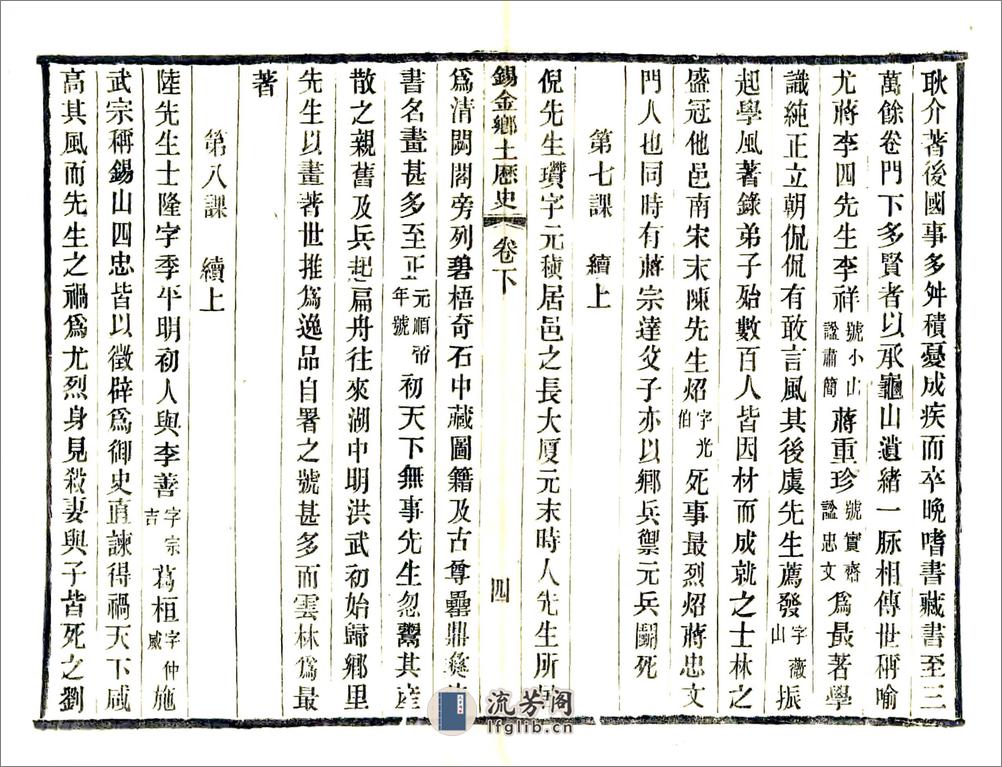 耿介著後國事多舛積憂成疾而卒晚嗜書藏書至三
萬餘卷門下多賢者以承龜山遺緒一脉相傳世稱喻
尤蔣李四先生李祥號小山諡肅簡蔣重珍號實齋諡忠文爲最著學
識純正立朝侃侃有敢言風其後虞先生薦發字薇山振
起學風著錄弟子始數百人皆因材而成就之士林之
盛冠他邑南宋末陳先生炤字光伯死事最烈炤蔣忠文
門人也同時有蔣宗達父子亦以鄉兵禦元兵鬭死
第七課 續上
倪先生瓚字元稹居邑之長大厦元末時人先生所
錫金鄉土歷史 卷下 四
爲清閟閣旁列碧梧奇石中藏圖籍及古尊罍鼎彝
書名畫甚多至正元順帝年號初天下無事先生忽鬻其產
散之親舊及兵起扁舟往來湖中明洪武初始歸鄉里
先生以畫著世推爲逸品自署之號甚多而雲林爲最
著
第八課 續上
陸先生士隆字季平明初人與李善字宗吉葛桓字仲威施
武宗稱錫山四忠皆以徵辟爲御史直諫得禍天下咸
高其風而先生之禍爲尤烈身見殺妻與子皆死之劉
流芳阁
lfglib.cn